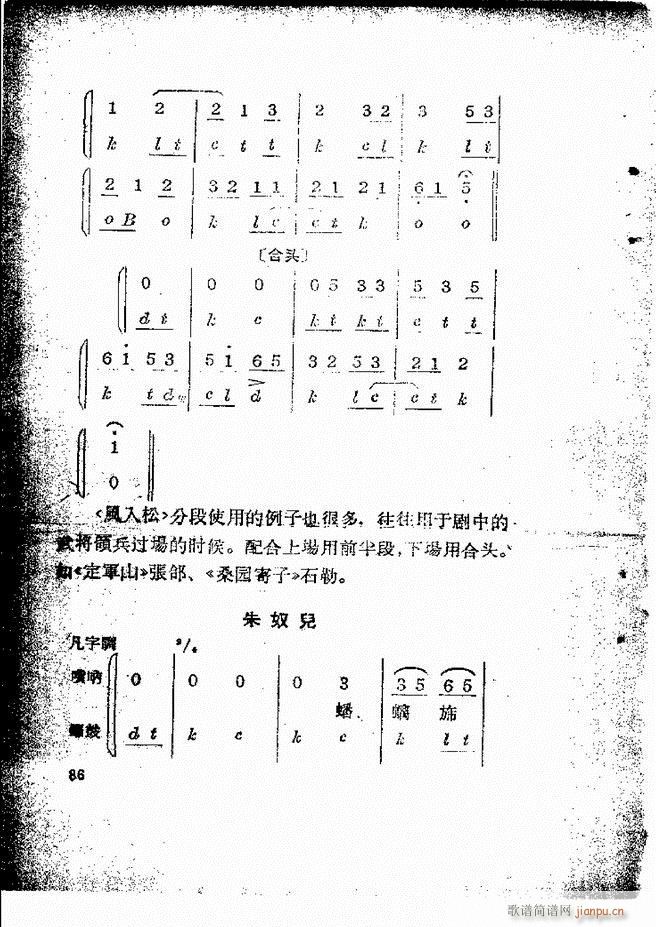 1 2 2 1 3 2 3 2 3 5 3
k l t c t t k c l k l t
2 1 2 3 2 1 1 2 1 2 1 6 1 5
o B o k l c c t k o o
〔合头〕
0 0 0 0 5 3 3 5 3 5
d t k c k t k t c t t
6 1 5 3 5 1 6 5 3 2 5 3 2 1 2
k t d c l d k l c c t k
1
0
《風入松》分段使用的例子也很多，往往用于剧中的
武将領兵过場的时候。配合上場用前半段，下場用合头。
如《定軍山》張郃、《桑园寄子》石勒。
朱奴兒
凡字調 2/4
嗩吶 0 0 0 0 3 3 5 6 5
蟠 螭 旆
鑼鼓 d t k c k c k l t
86
歌谱简谱网 jianpu.cn